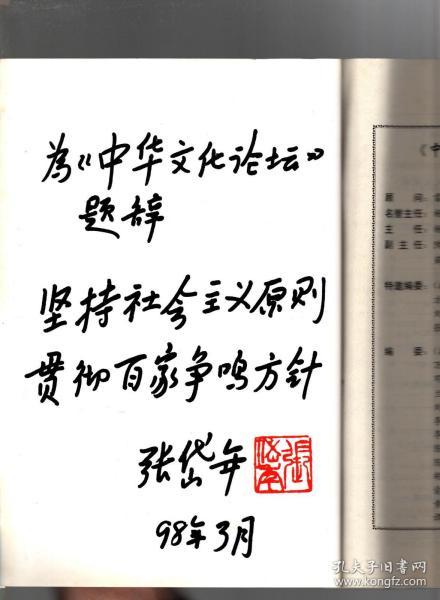 为《中华文化论坛》
题辞
坚持社会主义原则
贯彻百家争鸣方针
张岱年
98年3月
张岱年
《中
顾 问：
名誉主任：
主 任：
副主任：
特邀编委：
编 委：
孔夫子旧书网
www.kongfz.com